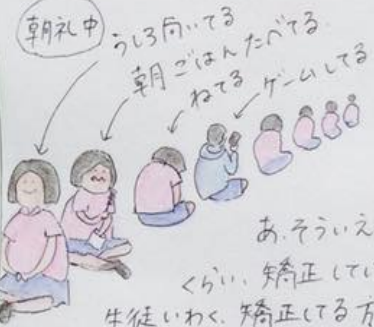 朝礼中
うしろ向いてる
朝ごはんたべてる
ねてる
ゲームしてる
あ、そういえ
くらい、矯正してい
生徒いわく、矯正してる方